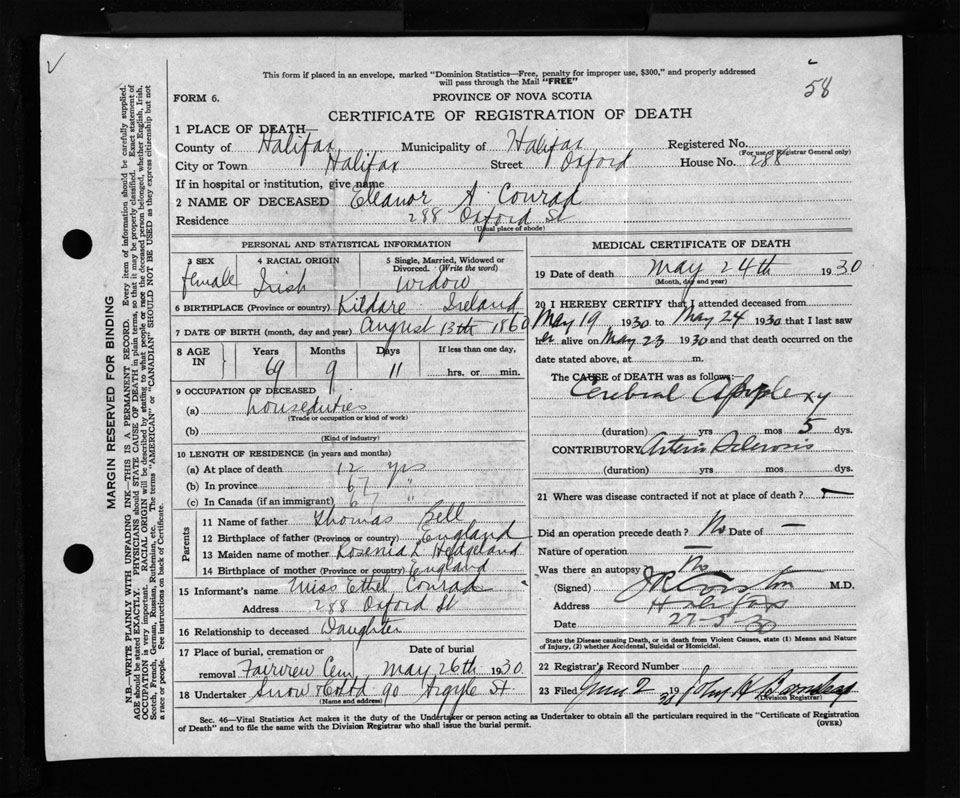 This form if placed in an envelope, marked "Dominion Statistics—Free, penalty for improper use, $300," and properly addressed
will pass through the Mail "FREE"
58
FORM 6.
PROVINCE OF NOVA SCOTIA
CERTIFICATE OF REGISTRATION OF DEATH
1 PLACE OF DEATH—
County of Halifax Municipality of Halifax Registered No.
(For use of Registrar General only)
City or Town Halifax Street Oxford House No. 288
If in hospital or institution, give name
2 NAME OF DECEASED Eleanor A. Conrad
Residence 288 Oxford St
(Usual place of abode)
PERSONAL AND STATISTICAL INFORMATION
3 SEX female 4 RACIAL ORIGIN Irish 5 Single, Married, Widowed or Divorced. (Write the word) Widow
6 BIRTHPLACE (Province or country) Kildare Ireland
7 DATE OF BIRTH (month, day and year) August 13th 1860
8 AGE IN Years 69 Months 9 Days 11 If less than one day, hrs. or min.
9 OCCUPATION OF DECEASED
(a) houseduties
(Trade or occupation or kind of work)
(b)
(Kind of industry)
10 LENGTH OF RESIDENCE (in years and months)
(a) At place of death 12 yrs
(b) In province 67 "
(c) In Canada (if an immigrant) 67 "
Parents
11 Name of father Thomas Bell
12 Birthplace of father (Province or country) England
13 Maiden name of mother Rosenia L Hedgeland
14 Birthplace of mother (Province or country) England
15 Informant's name Miss Ethel Conrad
Address 288 Oxford St
16 Relationship to deceased Daughter
17 Place of burial, cremation or removal Fairview Cem Date of burial May 26th 1930
18 Undertaker Snow & Co Ltd 90 Argyle St
(Name and address)
MEDICAL CERTIFICATE OF DEATH
19 Date of death May 24th 1930
(Month, day and year)
20 I HEREBY CERTIFY that I attended deceased from
May 19 1930 to May 24 1930 that I last saw
her alive on May 23 1930 and that death occurred on the
date stated above, at m.
The CAUSE of DEATH was as follows:—
Cerebral Apoplexy
(duration) yrs mos 5 dys.
CONTRIBUTORY Arterio Sclerosis
(duration) yrs. mos. dys.
21 Where was disease contracted if not at place of death? —
Did an operation precede death? No Date of —
Nature of operation —
Was there an autopsy No
(Signed) M.D.
Address Halifax
Date 27-5-30
State the Disease causing Death, or in death from Violent Causes, state (1) Means and Nature
of Injury, (2) whether Accidental, Suicidal or Homicidal.
22 Registrar's Record Number
23 Filed June 2 1930 John H
(Division Registrar)
Sec. 46—Vital Statistics Act makes it the duty of the Undertaker or person acting as Undertaker to obtain all the particulars required in the "Certificate of Registration
of Death" and to file the same with the Division Registrar who shall issue the burial permit.
(OVER)
MARGIN RESERVED FOR BINDING
N.B.—WRITE PLAINLY WITH UNFADING INK—THIS IS A PERMANENT RECORD. Every item of information should be carefully supplied.
AGE should be stated EXACTLY. PHYSICIANS should STATE CAUSE OF DEATH in plain terms, so that it may be properly classified. Exact statement of
OCCUPATION is very important. RACIAL ORIGIN will be described by stating to what people or race the deceased person belonged, whether English, Irish,
Scotch, French, German, Russian, Ruthenian, etc. The terms "AMERICAN" or "CANADIAN" SHOULD NOT BE USED as they express citizenship but not
a race or people. See instructions on back of Certificate.